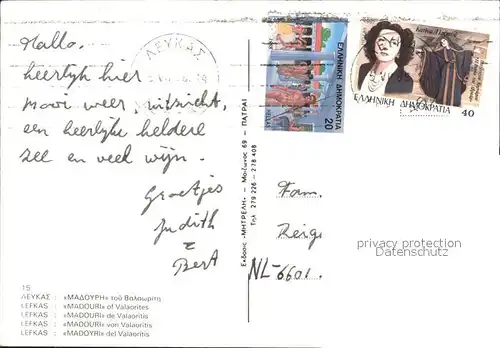 Hallo.
heerlijk hier
mooi weer, uitzicht,
een heerlijke heldere
zee en veel wijn.
Groetjes
Judith
&
Bert
15
ΛΕΥΚΑΣ : «ΜΑΔΟΥΡΗ» τοῦ Βαλαωρίτη
LEFKAS : «MADOURI» of Valaorites
LEFKAS : «MADOURI» de Valaoritis
LEFKAS : «MADOURI» von Valaoritis
LEFKAS : «MADOYRI» del Valaoritis
ΛΕΥΚΑΣ
Εκδοσις «ΜΗΤΡΕΛΗ» - Μαιζωνος 69 - ΠΑΤΡΑΙ
Τηλ. 279 226 - 278 408
ΕΛΛΗΝΙΚΗ ΔΗΜΟΚΡΑΤΙΑ
20
HELLAS
ΕΛΛΗΝΙΚΗ ΔΗΜΟΚΡΑΤΙΑ
40
Fam.
Reige
NL-6601.
privacy protection
Datenschutz